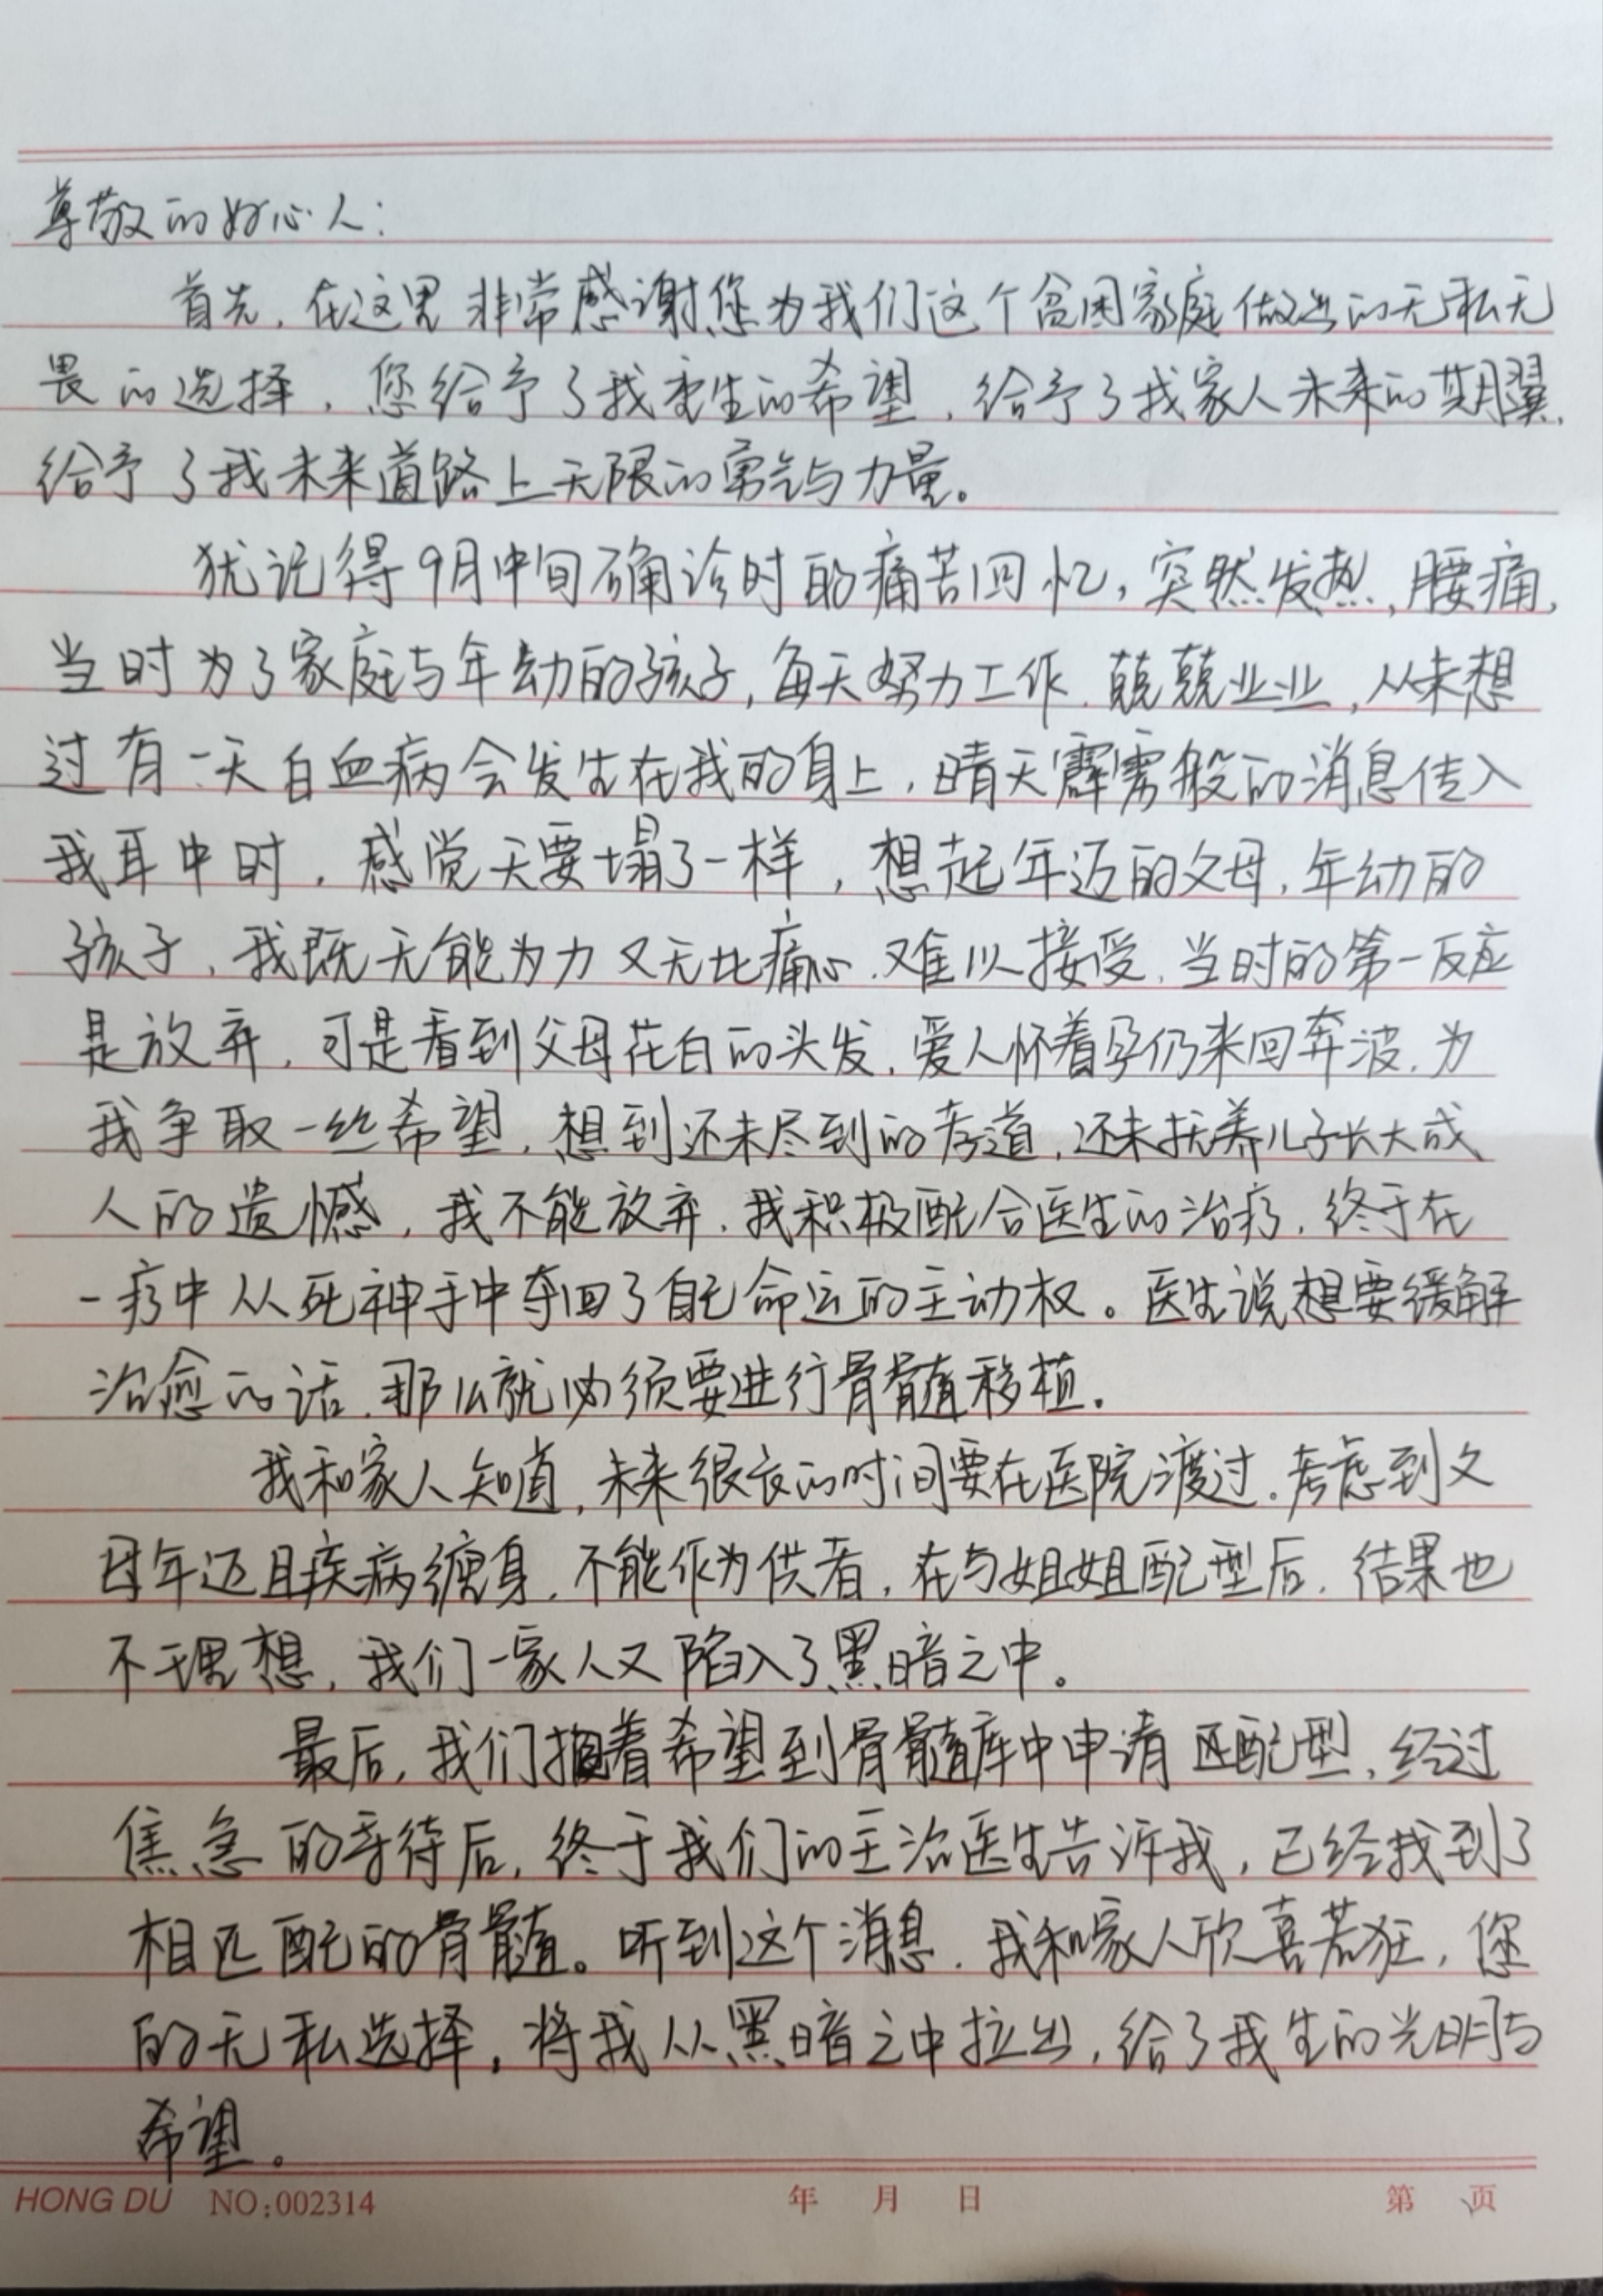 尊敬的好心人：
首先，在这里非常感谢您为我们这个贫困家庭做出的无私无
畏的选择，您给予了我重生的希望，给予了我家人未来的期翼，
给予了我未来道路上无限的勇气与力量。
犹记得9月中旬确诊时的痛苦回忆，突然发热，腰痛，
当时为了家庭与年幼的孩子，每天努力工作，兢兢业业，从未想
过有一天白血病会发生在我的身上，晴天霹雳般的消息传入
我耳中时，感觉天要塌了一样，想起年迈的父母，年幼的
孩子，我既无能为力又无比痛心，难以接受，当时的第一反应
是放弃，可是看到父母花白的头发，爱人怀着孕仍来回奔波，为
我争取一丝希望，想到还未尽到的孝道，还未抚养儿子长大成
人的遗憾，我不能放弃，我积极配合医生的治疗，终于在
一疗中从死神手中夺回了自己命运的主动权。医生说想要缓解
治愈的话，那么就必须要进行骨髓移植。
我和家人知道，未来很长的时间要在医院渡过，考虑到父
母年迈且疾病缠身，不能作为供者，在与姐姐配型后，结果也
不理想，我们一家人又陷入了黑暗之中。
最后，我们抱着希望到骨髓库中申请匹配型，经过
焦急的等待后，终于我们的主治医生告诉我，已经找到了
相匹配的骨髓。听到这个消息，我和家人欣喜若狂，您
的无私选择，将我从黑暗之中拉出，给了我生的光明与
希望。
HONG DU NO:002314 年 月 日 第 页